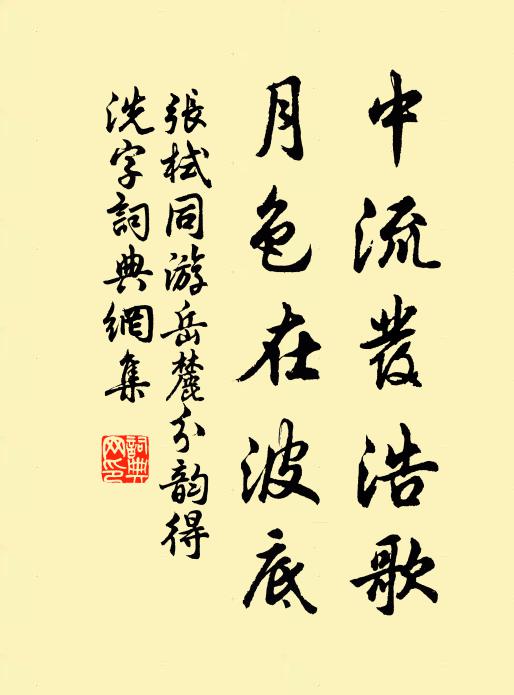 中流發浩歌
月色在波底
張栻同游岳麓分韵得
洗字詞典網集
詞典网印